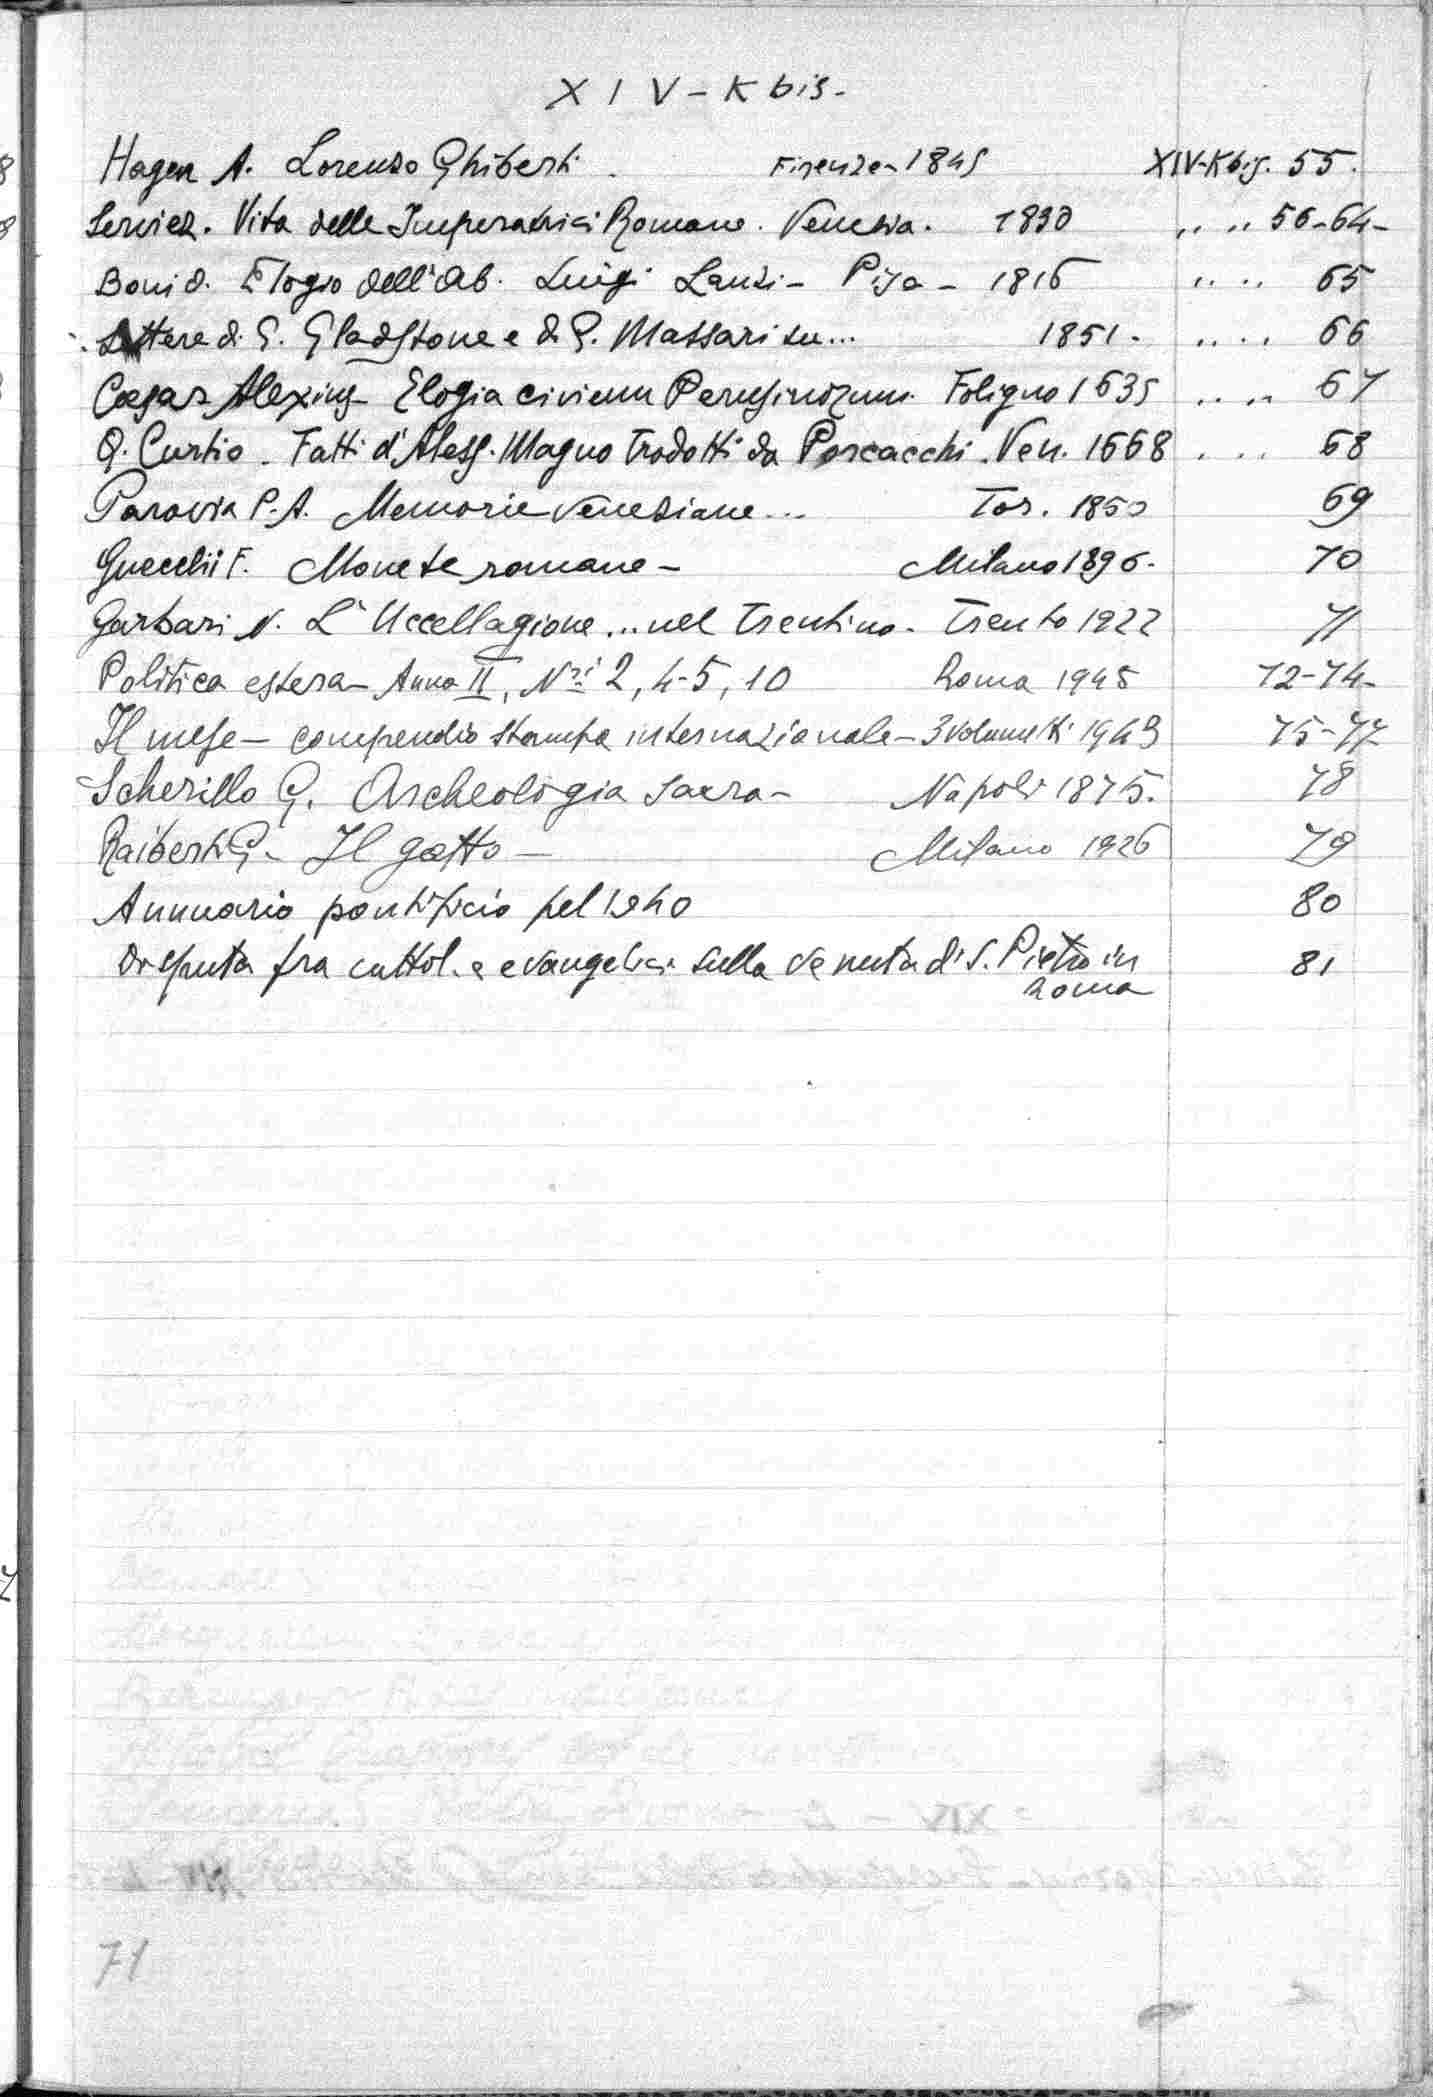 XIV-K bis-
Hagen A. Lorenzo Ghiberti. Firenze-1845 XIV-Kbis. 55.
Serviez. Vita delle Imperatrici Romane. Venezia. 1830 " " 56-64-
Boni d. Elogio dell'Ab. Luigi Lanzi- Pisa- 1816 " " 65
Lettere di G. Gladstone e di G. Massari su... 1851- " " 66
Cæsar Alexius- Elogia civium Perusinorum. Foligno 1635 " " 67
Q. Curtio. Fatti d'Aless. Magno tradotti da Porcacchi. Ven. 1668 " " 68
Paravia P.A. Memorie veneziane... Tor. 1850 69
Gnecchi F. Monete romane- Milano 1896. 70
Garbari N. L'Uccellagione...nel Trentino- Trento 1922 71
Politica estera- Anno II, Nri 2, 4-5, 10 Roma 1945 72-74-
Il mese- compendio stampa internazionale- 3 volumetti 1943 75-77-
Scherillo G. Archeologia sacra- Napoli 1875. 78
Raiberti G- Il gatto- Milano 1926 79
Annuario pontificio pel 1940 80
Disputa fra cattol. e evangelici sulla venuta di S. Pietro in 81
Roma
71